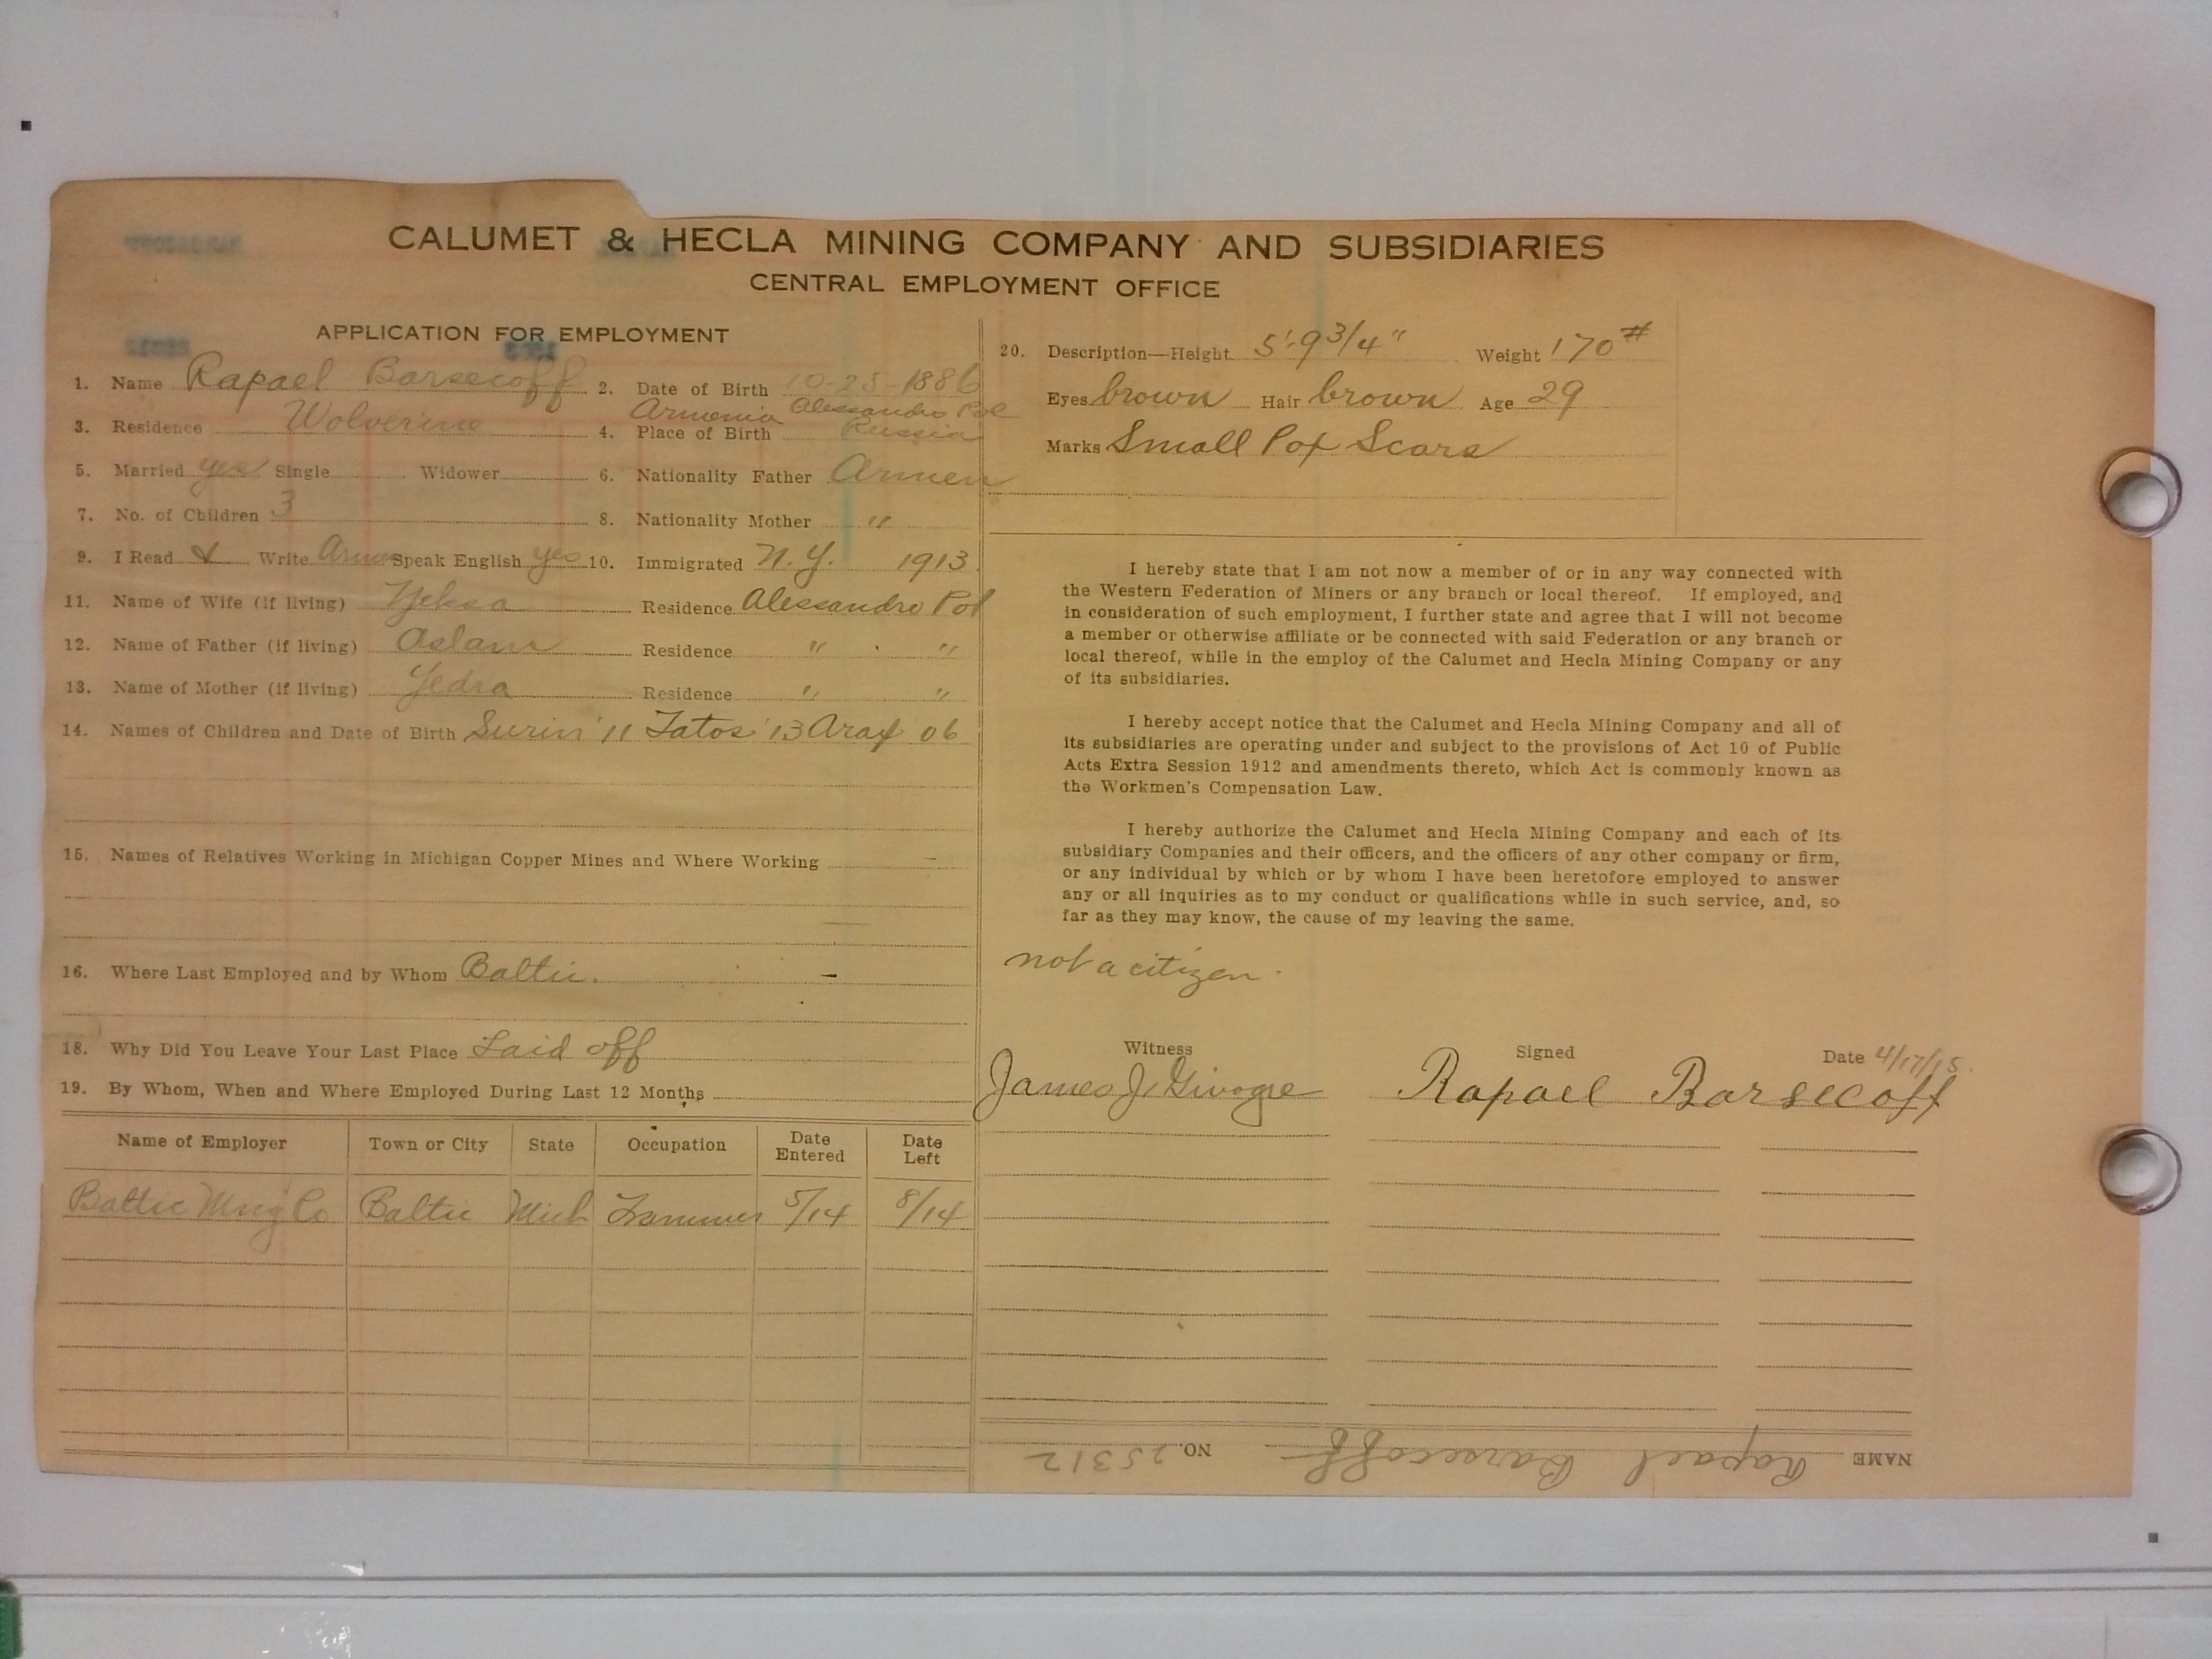 CALUMET & HECLA MINING COMPANY AND SUBSIDIARIES
CENTRAL EMPLOYMENT OFFICE
APPLICATION FOR EMPLOYMENT
1. Name Rapael Barsecoff 2. Date of Birth 10-25-1886
Armenia Alessandro Pol
3. Residence Wolverine 4. Place of Birth Russia
5. Married yes Single Widower 6. Nationality Father Armen
7. No. of Children 3 8. Nationality Mother "
9. I Read & Write Armen Speak English yes 10. Immigrated N.Y. 1913
11. Name of Wife (if living) Yeksa Residence Alessandro Pol
12. Name of Father (if living) Aslam Residence " "
13. Name of Mother (if living) Yedra Residence " "
14. Names of Children and Date of Birth Surin '11 Tatos '13 06
15. Names of Relatives Working in Michigan Copper Mines and Where Working —
16. Where Last Employed and by Whom Baltic. —
18. Why Did You Leave Your Last Place Laid off
19. By Whom, When and Where Employed During Last 12 Months
Name of Employer Town or City State Occupation Date Entered Date Left
Baltic Mng Co Baltic Mich Trammer 5/14 8/14
20. Description—Height 5'-9 3/4" Weight 170#
Eyes brown Hair brown Age 29
Marks Small Pox Scars
I hereby state that I am not now a member of or in any way connected with
the Western Federation of Miners or any branch or local thereof. If employed, and
in consideration of such employment, I further state and agree that I will not become
a member or otherwise affiliate or be connected with said Federation or any branch or
local thereof, while in the employ of the Calumet and Hecla Mining Company or any
of its subsidiaries.
I hereby accept notice that the Calumet and Hecla Mining Company and all of
its subsidiaries are operating under and subject to the provisions of Act 10 of Public
Acts Extra Session 1912 and amendments thereto, which Act is commonly known as
the Workmen's Compensation Law.
I hereby authorize the Calumet and Hecla Mining Company and each of its
subsidiary Companies and their officers, and the officers of any other company or firm,
or any individual by which or by whom I have been heretofore employed to answer
any or all inquiries as to my conduct or qualifications while in such service, and, so
far as they may know, the cause of my leaving the same.
not a citizen.
Witness Signed Date 4/17/15.
James J. Rapael Barsecoff
NAME Rapael Barsecoff NO. 25312